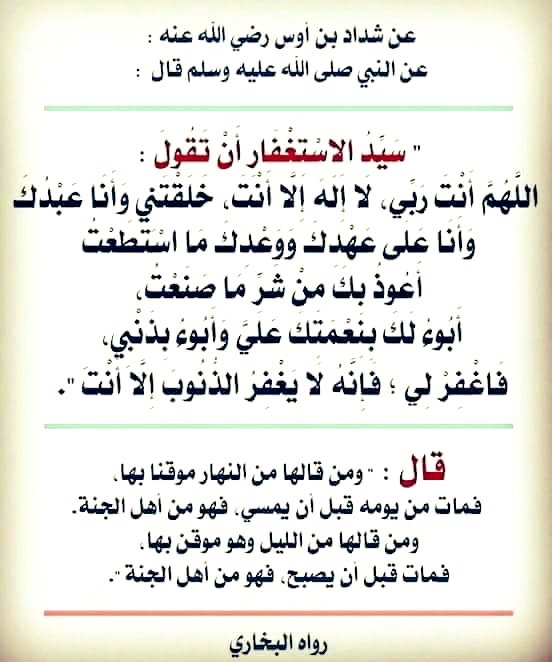 عن شداد بن أوس رضي الله عنه :
عن النبي صلى الله عليه وسلم قال :
" سَيِّدُ الاسْتغْفَار أَنْ تَقُولَ :
اللَّهُمَّ أَنْتَ رَبِّي، لا إَلَهَ إلَّا أَنْتَ، خَلَقْتَني وأَنَا عَبْدُكَ
وَأَنَا عَلى عَهْدكَ وَوَعْدكَ مَا اسْتَطَعْتُ
أَعُوذُ بكَ مَنْ شَرِّ مَا صَنَعْتُ،
أَبُوءُ لَكَ بنَعْمَتكَ عَلَيَّ وَأَبُوءُ بذَنْبي،
فَاغْفِرْ لِي ؛ فَإِنَّهُ لَا يَغْفِرُ الذُّنُوبَ إِلَّا أَنْتَ ".
قال : " ومن قالها من النهار موقنا بها،
فمات من يومه قبل أن يمسي، فهو من أهل الجنة.
ومن قالها من الليل وهو موقن بها،
فمات قبل أن يصبح، فهو من أهل الجنة ".
رواه البخاري